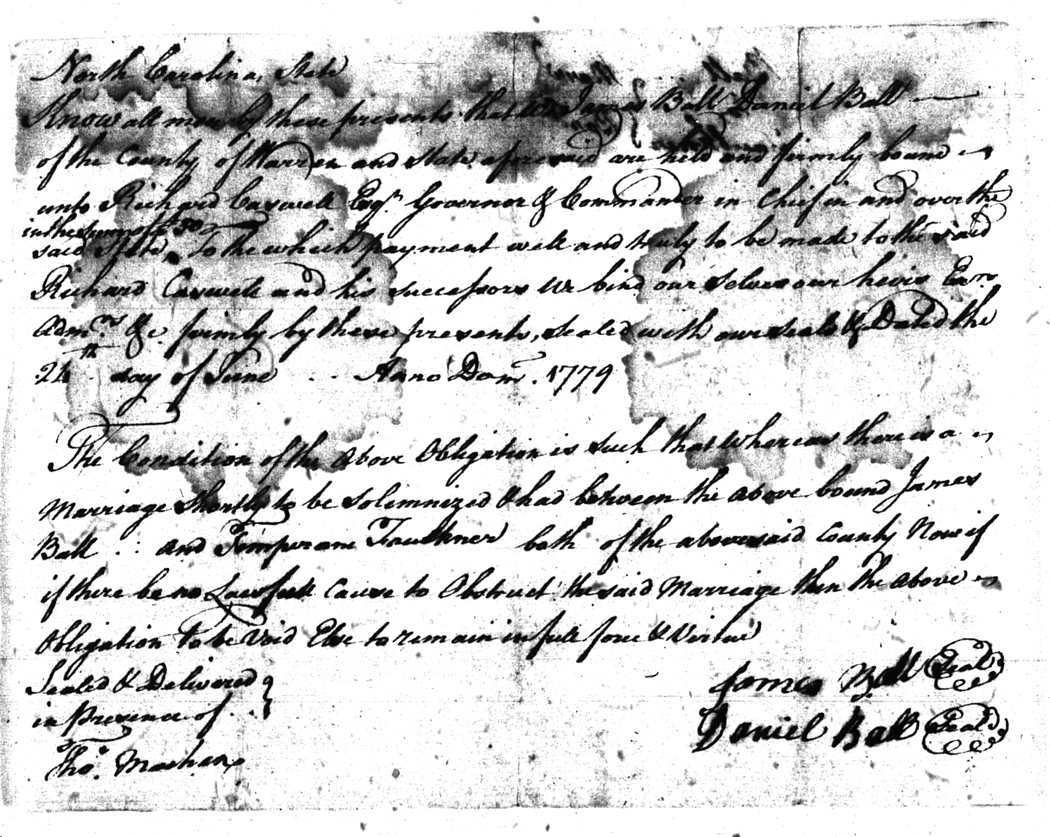 North Carolina, State
Know all men by these presents that We James Ball Daniel Ball
of the County of Warren and State aforesaid are held and firmly bound
unto Richard Caswell Esqr. Governor & Commander in Chief in and over the
in the Sum of
said State, To the which payment well and truly to be made to the said
Richard Caswell and his successors we bind our selves our heirs Exrs
Admrs &c. firmly by these presents, sealed with our seals & Dated the
day of June .. Anno Dom. 1779
The Condition of the Above Obligation is such that Whereas there is a
Marriage Shortly to be Solemnized & had between the above bound James
Ball .. and Faulkner both of the abovesaid County Now if
if there be no Lawfull Cause to Obstruct the said Marriage then the Above
Obligation to be Void Else to remain in full force & Virtue
Sealed & Delivered
in Presence of ..
Thos. Machen
James Ball Seal
Daniel Ball Seal